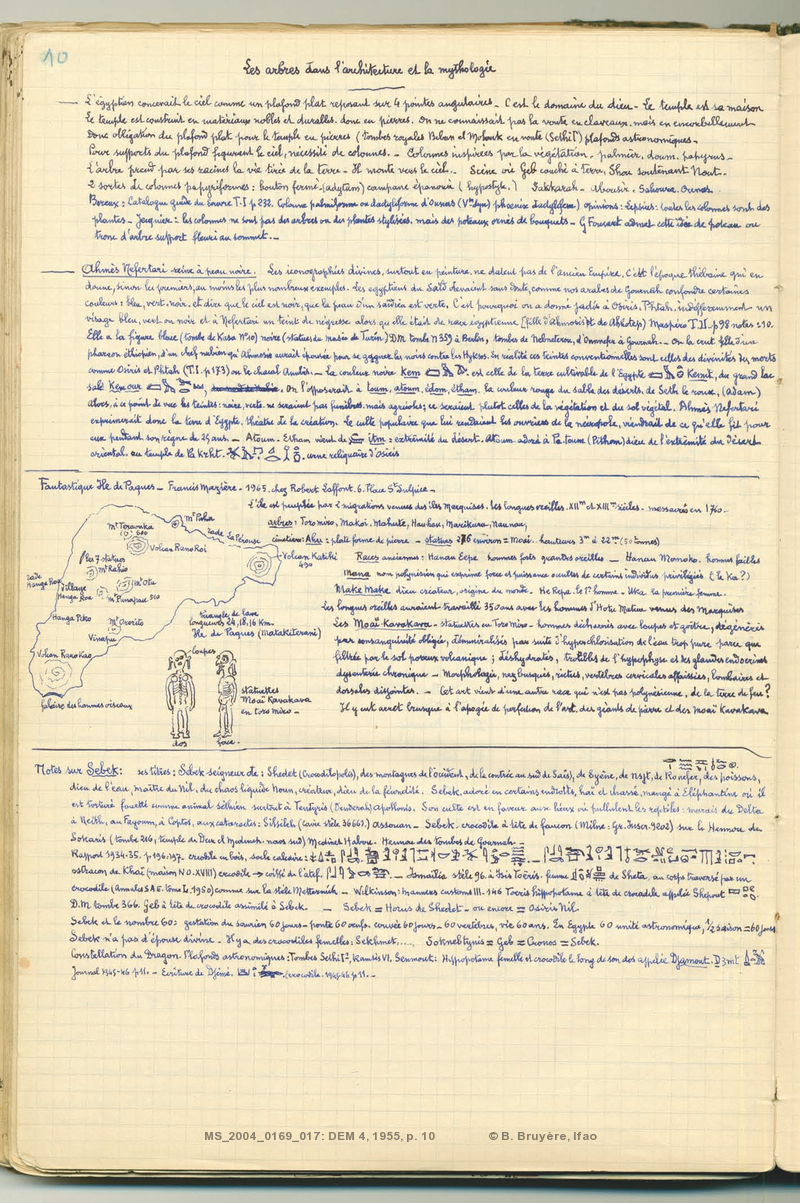 10
Les arbres dans l'architecture et la mythologie
— L'égyptien concevait le ciel comme un plafond plat reposant sur 4 pointes angulaires – C'est le domaine du dieu – Le temple est sa maison
Le temple est construit en matériaux nobles et durables. donc en pierres. On ne connaissait pas la voute en claveaux, mais en encorbellement
Donc obligation du plafond plat pour le temple en pierres (tombes royales Biban el Molouk en voute (Sethi Iᵉʳ) plafonds astronomiques –
Pour supports du plafond figurant le ciel, nécessité de colonnes. – Colonnes inspirées par la végétation – palmier, doum, papyrus –
L'arbre prend par ses racines la vie tirée de la terre – Il monte vers le ciel. – Scène où Geb couché à terre, Shou soutenant Nout. –
2 sortes de colonnes papyriformes : bouton fermé (adytam) campane épanouie (hypostyle.) Sakkarah – Abousir – Sahoura, Ounas.
Boreux : Catalogue guide du Louvre T.I p 232. Colonne palmiforme ou dactyliforme d'Ounas (Vᵉ dyn) phoenix dactylifera) opinions : Lepsius : toutes les colonnes sont des
plantes – Jequier : les colonnes ne sont pas des arbres ou des plantes stylisées, mais des poteaux ornés de bouquets – G Foucart admet cette idée de poteau ou
tronc d'arbre support fleuri au sommet. –
— Ahmès Nefertari reine à peau noire. Les iconographies divines, surtout en peinture, ne datent pas de l'ancien Empire. C'est l'époque thébaine qui en
donne, sinon les premiers, au moins les plus nombreux exemples. Les egyptiens du Saïd devaient sans doute, comme nos arabes de Gournah confondre certaines
couleurs : bleu, vert, noir, et dire que le ciel est noir, que la peau d'un saïdien est verte. C'est pourquoi on a donné jadis à Osiris, Phtah, indifféremment un
visage bleu, vert ou noir et à Nefertari un teint de négresse alors qu'elle était de race égyptienne (fille d'Ahmosis et de Ahhotep) Maspéro T.II – p 98 notes
Elle a la figure bleue (tombe de Kasa Nº10) noire (statues du musée de Turin) D.M. tombe N 359 à Berlin, tombes de Nebnetrou, d'Onnofre à Gournah – On la crut fille d'un
pharaon éthiopien, d'un chef nubien qu'Ahmosis aurait épousée pour se gagner les noirs contre les Hyksos. En réalité ces teintes conventionnelles sont celles des divinités des morts
comme Osiris et Phtah (T.I. p 173) ou le chacal Anubis. – La couleur noire Kem est celle de la terre cultivable de l'Egypte Kemit, du grand lac
salé Kemour. On l'opposerait à toum, atoum, edom, Etham. la couleur rouge du sable des déserts, de Seth le roux, (Adam)
Alors, à ce point de vue les teintes : noire, verte ne seraient pas funèbres, mais agricoles ; ce seraient plutot celles de la végétation et du sol végétal. Ahmès Nefertari
exprimerait donc la terre d'Egypte, théâtre de la création. Le culte populaire que lui rendaient les ouvriers de la nécropole, viendrait de ce qu'elle fit pour
eux pendant son règne de 25 ans – Atoum. Etham vient de Itm : extrémité du désert. Atoum adoré à Pa Toum (Pithom) dieu de l'extrémité du Désert
oriental. au temple de Pa Krht. urne reliquaire d'Osiris
Fantastique Ile de Paques – Francis Mazière – 1965. chez Robert Laffont. 6. Place Sᵗ Sulpice –
L'île est peuplée par 2 migrations venues des îles Marquises. Les longues oreilles. XIIᵐᵉ et XIIIᵐᵉ siècles – massacrés en 1760 –
arbres : Toro miro, Makoi, Mahute, Hauhau, Marikuru, Naunau,
cimetière : Ahu : plate forme de pierre – statues 276 environ = Moaï. hauteurs 3ᵐ à 22ᵐ (50 tonnes)
Races anciennes : Hanau Eepe hommes forts grandes oreilles – Hanau Momoko. hommes faibles
Mana nom polynésien qui exprime force et puissance occultes de certains individus privilégiés (le Ka ?)
Make Make dieu créateur, origine du monde. He Repa. le 1ᵉʳ homme – Uka la première femme.
Les longues oreilles auraient travaillé 350 ans avec les hommes d'Hotu Matua venus des Marquises
Les Moaï Kavakava – statuettes en Toro Miro – hommes décharnés avec loupes et goître, dégénérés
par consanguinité obligée, déminéralisés par suite d'hyperchlorisation de l'eau trop pure parce que
filtrée par le sol poreux volcanique ; déshydratés, troubles de l'hypophyse et des glandes endocrines
dysenterie chronique – Morphologie, nez busqués, rictus, vertèbres cervicales affaissées, lombaires et
dorsales disjointes. – Cet art vient d'une autre race qui n'est pas polynésienne, de la terre de feu ?
Il y eut arret brusque à l'apogée de perfection de l'art, des géants de pierre et des moaï Kavakava
Mᵗ Puha
Mᵗ Terevaka
Rade La Pérouse
Volcan Rano Roi
Volcan Katiki
Les 7 statues
Mᵗ Rahio
Mᵗ Otu
Rade Hanga Roa
Village Hanga Roa
Mᵗ Punapau
Hanga Piko
Mᵗ Ororito
Vinapu
Volcan Rano Kao
falaise des hommes oiseaux
triangle de lave
longueurs 24, 18, 16 Km.
Ile de Paques (Matakiterani)
loupes
statuettes
Moaï Kavakava
en toro miro –
dos face.
Notes sur Sebek : ses titres : Sebek seigneur de : Shedet (Crocodilopolis), des montagnes de l'occident, de la contrée au sud de Saïs), de Syène, de nsjt, de Ronefer, des poissons,
dieu de l'eau, maître du Nil, du chaos liquide Noun, créateur, dieu de la fécondité. Sebek, adoré en certains endroits, haï et chassé, mangé à Eléphantine où il
est torturé fouetté comme animal séthien surtout à Tentyris (Denderah) Apollonis. Son culte est en faveur aux lieux où pullulent les reptiles : marais du Delta
à Neith, au Fayoum, à Coptos, aux cataractes : Silsileh (Caire stèle 36667) Assouan – Sebek. crocodile à tête de faucon (Milne : Gr. Inscr. 9202) sur le Henou de
Sokaris (tombe 216, temple de Deir el Medineh. naos sud) Medinet Habou. Hennou des tombes de Gournah –
Rapport 1934-35. p. 196-197. crocodile en bois, socle calcaire :
ostracon de Khaï (maison N.O. XVIII) crocodile → coiffé de l'atef. – Ismaïlia stèle 96. à Isis Toëris. femme de Sheta, au corps traversé par un
crocodile (Annales SAE. tome L, 1950) comme sur la stèle Metternich – Wilkinson : manners customs III. 146 Toëris hippopotame à tête de crocodile appelée Shepout
D.M. tombe 366. Geb à tête de crocodile assimilé à Sebek. – Sebek = Horus de Shedet – ou encore = Osiris Nil.
Sebek et le nombre 60 : gestation du saurien 60 jours – ponte 60 oeufs. couvée 60 jours – 60 vertèbres, vie 60 ans. En Egypte 60 unité astronomique, ½ saison = 60 jours
Sebek n'a pas d'épouse divine – Il y a des crocodiles femelles ; Sekhmet....., Soknebtynis = Geb = Cronos = Sebek.
Constellation du Dragon. Plafonds astronomiques : Tombes Sethi Iᵉʳ, Ramsès VI, Senmout : Hippopotame femelle et crocodile le long de son dos appelée Djamout. D3mt
Journal 1945-46 p 11. – Ecriture de Djémé. (crocodile. 1945-46 p 11. –
MS_2004_0169_017: DEM 4, 1955, p. 10 © B. Bruyère, Ifao